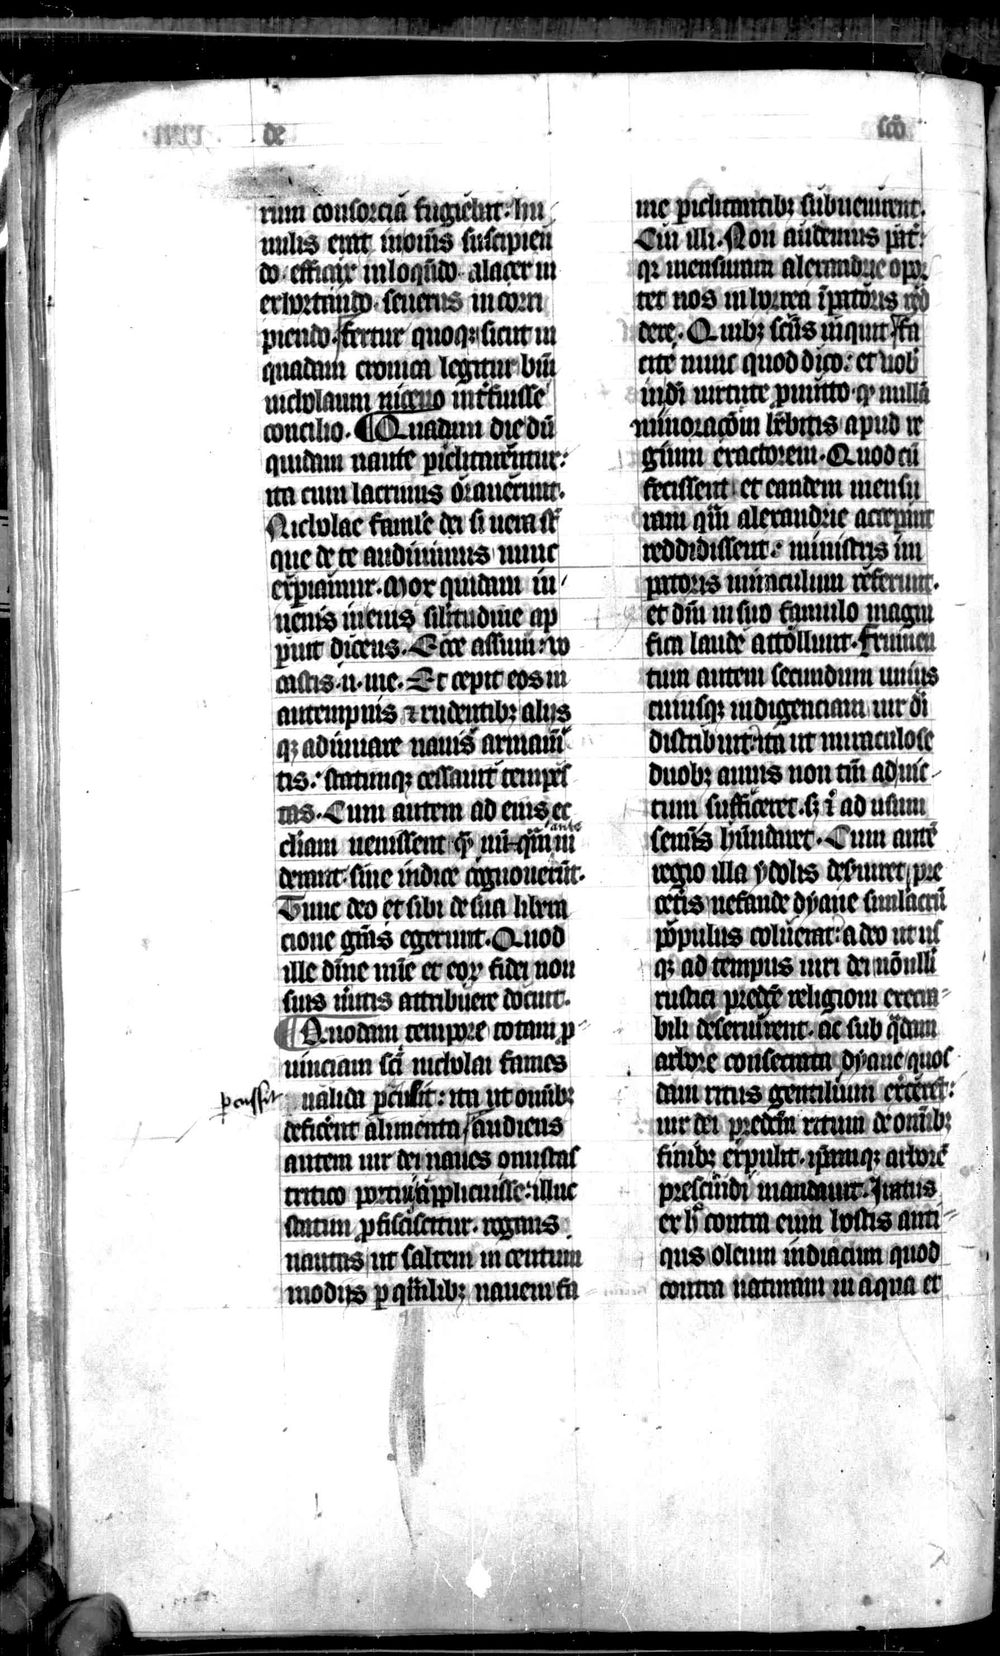 de
scō
rum consorcia fugiebat: hu
milis erat in om̄s suscipien
do· efficax in loqn̄do· alacer in
exhortando· seuerus in corri
piendo· fertur quoqꝫ sicut in
quadam cronica legitur bīm
nicholaum niceno int̄fuisse
concilio· Quadam die dū
quidam naute periclitarentur:
ita cum lacrimis orauerunt·
Nicholae famule dei si uera sūt
que de te audiuimus nunc
experiamur· Mox quidam iu
uenis in eius silitudine ap
paruit dicens· Ecce assum: vo
castis ·n· me· Et cepit eos in
antempnis ⁊ rudentibꝫ alijs
qꝫ adiuuare nauis armam̄
tis: statimqꝫ cessauit tempes
tas· Cum autem ad eius ec
cliam uenissent qm̄ nūqm̄ ante ui
derant· sine indice cognouerūt·
Tunc deo et sibi de sua libera
cione grās egerunt· Quod
ille diuine mīe et eoꝝ fidei non
suis meritis attribuere docuit·
Quodam tempore totam p
uinciam scī nicholai fames
ualida perculit: ita ut omībꝫ
percussit
deficerent alimenta audiens
autem uir dei naues onustas
tritico portui applicuisse: illuc
statim pficiscitur· rogans
nautas ut saltem in centum
modijs p qm̄libꝫ nauem fa
me periclitantibꝫ subuenirent·
Cui illi· Non audemus pat̄:
qꝫ mensuram alexandrie opor
tet nos in horrea īpatoris red
dere· Quibꝫ scūs inquit fa
cite nunc quod dico: et uob
in dei uirtute pmitto qꝫ nullā
minoracōm hēbitis apud re
gium exactorem· Quod cū
fecissent et eandem mensu
ram qm̄ alexandrie acceperint
reddidissent: ministris im
patoris miraculum referunt·
et dm̄ in suo famulo magni
fica laude attollunt· Frumen
tum autem secundum unius
cuiusqꝫ indigenciam uir dei
distribuit: ita ut miraculose
duobꝫ annis non tm̄ ad uic
tum sufficeret· sꝫ ⁊ ad usum
seminis habundaret· Cum autē
regio illa ydolis deseruiret pre
ceteris nefande dyane simlacrū
populus coluerat: adeo ut us
qꝫ ad tempus uiri dei nōnulli
rustici predce religioni execra
bili deseruirent· ac sub qadam
arbore consecrata dyane quos
dam ritus gentilium exercerēt:
uir dei predcm̄ ritum de omībꝫ
finibꝫ expulit· ipsamqꝫ arborē
prescindi mandauit· Iratus
ex hͦ contra eum hostis anti
qus oleum indiacum quod
contra naturam in aqua et